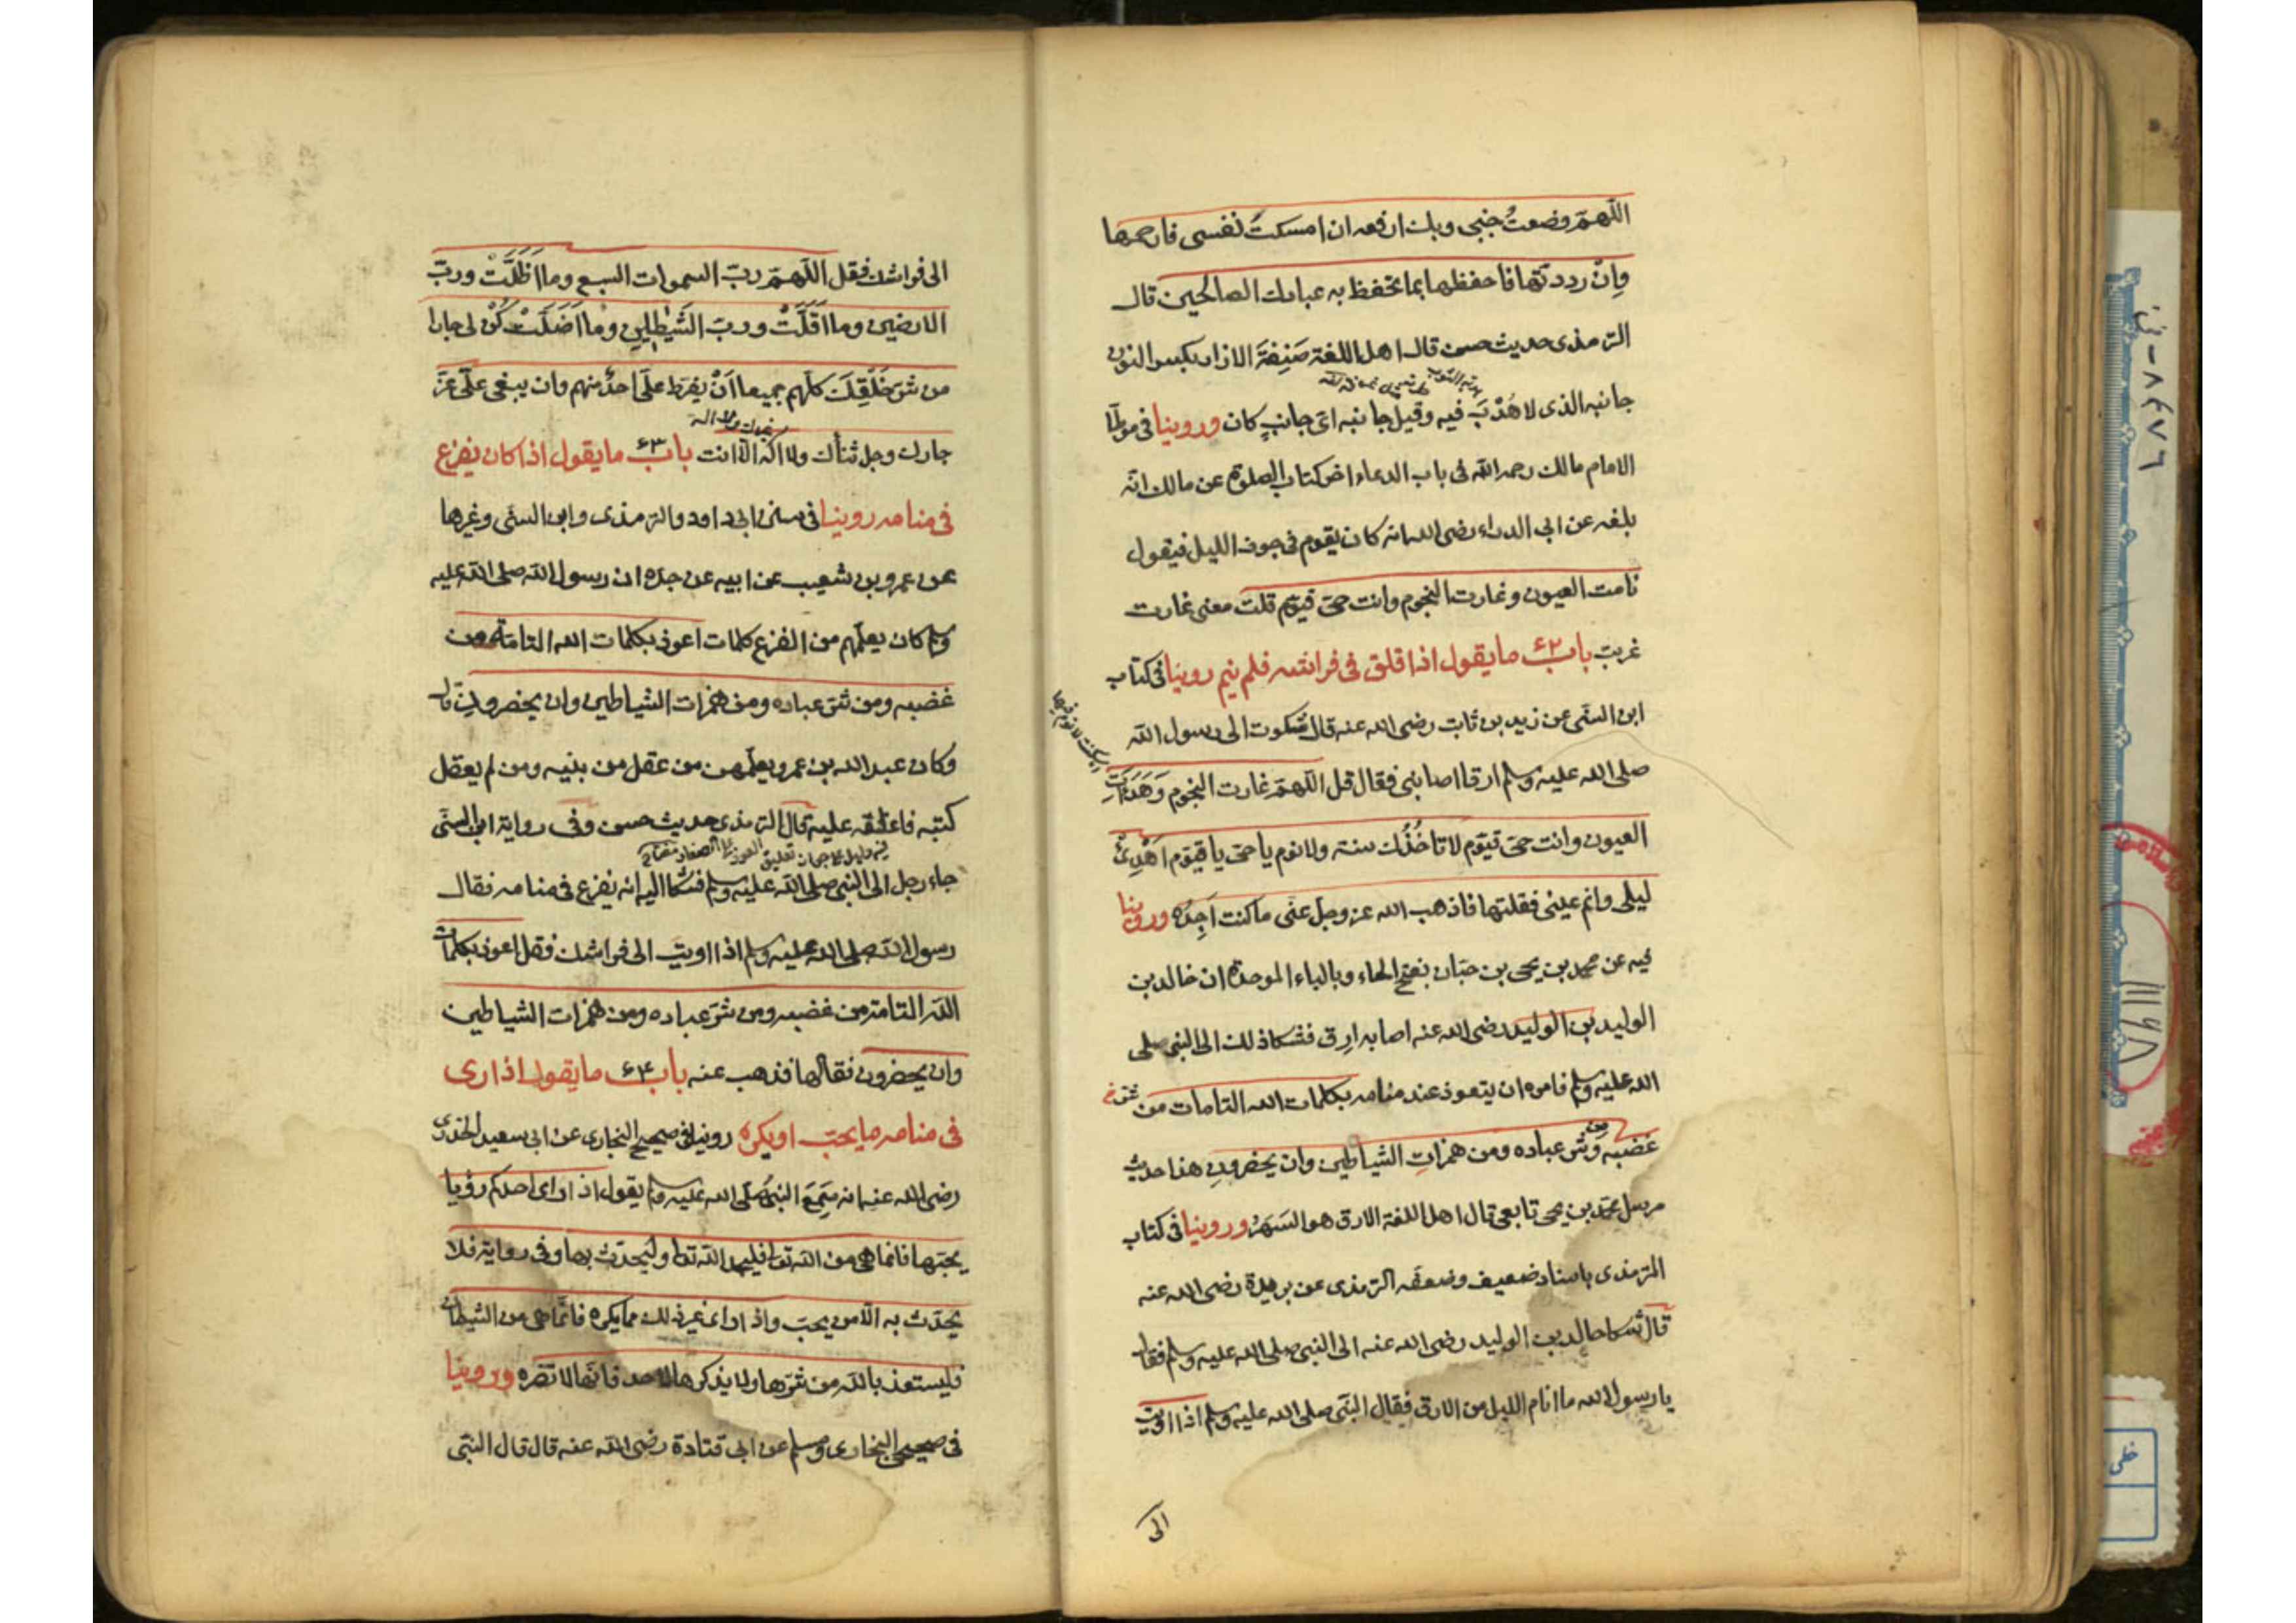 اللهمّ وضعتُ جنبى وبك ارفعه ان امسكتَ نفسى فارحمها
وانْ رددتّها فاحفظها بما تحفظ به عبادك الصالحين قال
الترمذى حديث حسن قال اهل اللغة صَنِفةَ الازار بكسر النون
جانبه الذى لا هُدْبَ فيه وقيل جانبه اىّ جانبٍ كان وروينا فى موطّا
الامام مالك رحمه الله فى باب الدعاء اخر كتاب الصلوة عن مالك انّه
بلغه عن ابى الدراء رضى الله انه كان يقوم فى جوف الليل فيقول
نامت العيون وغارت النجوم وانت حىّ قيّوم قلت معنى غارت
غربت باب ٦٢ ما يقول اذا قلق فى فراشه فلم ينم روينا فى كتاب
ابن السنّى عن زيد بن ثابت رضى الله عنه قال شكوت الى رسول الله
صلى الله عليه وسلم ارقا اصابنى فقال قل اللهمّ غارت النجوم وَهَدَأتِ
العيون وانت حىّ قيّوم لا تاخُذُك سنة ولا نوم يا حىّ يا قيّوم اَهْدِئْ
ليلى وانم عينى فقلتها فاذهب الله عز وجل عنّى ما كنت اَجِدُه وروينا
فيه عن محمد بن يحيى بن حبّان بفتح الحاء وبالباء الموحدة ان خالد بن
الوليد بن الوليد رضى الله عنه اصابه ارق فشكا ذلك الى النبى صلى
الله عليه وسلم فامره ان يتعوذ عند منامه بكلمات الله التامات من
غضبه ومن شر عباده ومن همزات الشياطين وان يحضرونِ هذا حديث
مرسل محمّد بن يحيى تابعى قال اهل اللغة الارق هو السَهَرُ وروينا فى كتاب
الترمذى باسناد ضعيف وضعّفه الترمذى عن بريدة رضى الله عنه
قال شكا خالد بن الوليد رضى الله عنه الى النبى صلى الله عليه وسلم فقال
يا رسول الله ما انام الليل من الارق فقال النبّى صلى الله عليه وسلم اذا اويت
الى
الى فراشك فقل اللهمّ ربّ السموات السبع وما اَظَلَّتْ وربّ
الارضين وما اَقَلَّتْ وربّ الشيطين وما اَضَلَّتْ كُنْ لى جارا
من شرّ خَلْقِكَ كلّهم جميعا اَنْ يفرط علىّ احدٌ منهم وان يبغى علىّ عزّ
جارك وجل ثناؤك ولا اله الّا انت باب ٦٣ ما يقول اذا كان يفزع
فى منامه روينا فى سنن ابى داود والترمذى وابن السنّى وغيرها
عن عمرو بن شعيب عن ابيه عن جدّه ان رسول الله صلى الله عليه
وسلم كان يعلّمهم من الفزع كلمات اعوذ بكلمات الله التامّة من
غضبه ومن شرّ عباده ومن همزات الشياطين وان يحضرون قال
وكان عبد الله بن عمرو يعلّمهن من عقل من بنيه ومن لم يعقل
كتبه فاعلقه عليه قال الترمذى حديث حسن وفى رواية ابن السنّى
جاء رجل الى النبى صلى الله عليه وسلم فشكا اليه انه يفزع فى منامه فقال
رسول الله صلى الله عليه وسلم اذا اويت الى فراشك فقل اعوذ بكلمات
الله التامة من غضبه ومن شرّ عباده ومن همزات الشياطين
وان يحضرون فقالها فذهب عنه باب ٦٤ ما يقول اذا رى
فى منامه ما يحبّ او يكره روينا فى صحيح البخارى عن ابى سعيد الخدرى
رضى الله عنه انه سَمِعَ النبىّ صلّى الله عليه وسلم يقول اذا راى احدكم رؤيا
يحبّها فانما هى من الله تعا فليحمد الله تعا وليحدّث بها وفى رواية فلا
يحدّث به الّا من يحبّ واذا راى غير ذلك مما يكره فانّما هى من الشيطان
فليستعذ بالله من شرّها ولا يذكرها لاحد فانّها لا تضرّه وروينا
فى صحيحى البخارى ومسلم عن ابى قتادة رضى الله عنه قال قال النبّى
٨٤٧٦ - ف
١١١٤٨
خطى